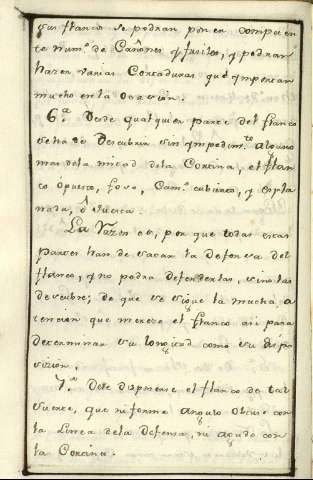 sus flancos se podran poner en competen
te num.o de Cañones y fusiles, y podran
hazer varias Cortaduras que ymportan
mucho en la ocasion.
6.a Desde qualquier parte del flanco
se ha de descubrir sin ympedim.to alguno
mas dela mitad dela Cortina, el flan
co opuesto, foso, Cam.o cubierto, y expla
nada, ô
La razon es, por que todas estas
partes han de sacar la defensa del
flanco, y no podra defenderlas, sino las
descubre; de que se sigue la mucha, a
tencion que merece el flanco asi para
determinar su longitud como su dispo
sizion.
7.a Debe disponerse el flanco de tal
suerte, que ni forme angulo obtuso con
la Linea dela Defensa, ni agudo con
la Cortina.